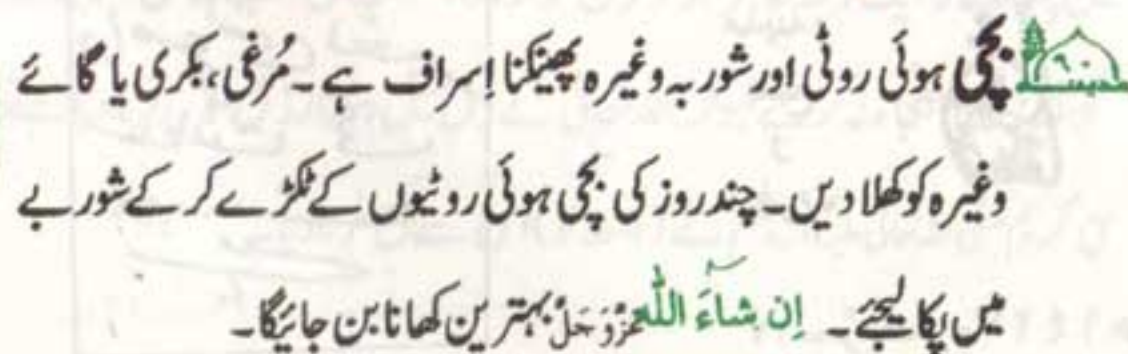 مدینہ ۹۰ بچی ہوئی روٹی اور شوربہ وغیرہ پھینکنا اِسراف ہے۔ مُرغی، بکری یا گائے
وغیرہ کو کھلا دیں۔ چند روز کی بچی ہوئی روٹیوں کے ٹکڑے کر کے شوربے
میں پکا لیجئے۔ اِن شاءَ اللّٰه عَزَّوَجَلَّ بہترین کھانا بن جائیگا۔